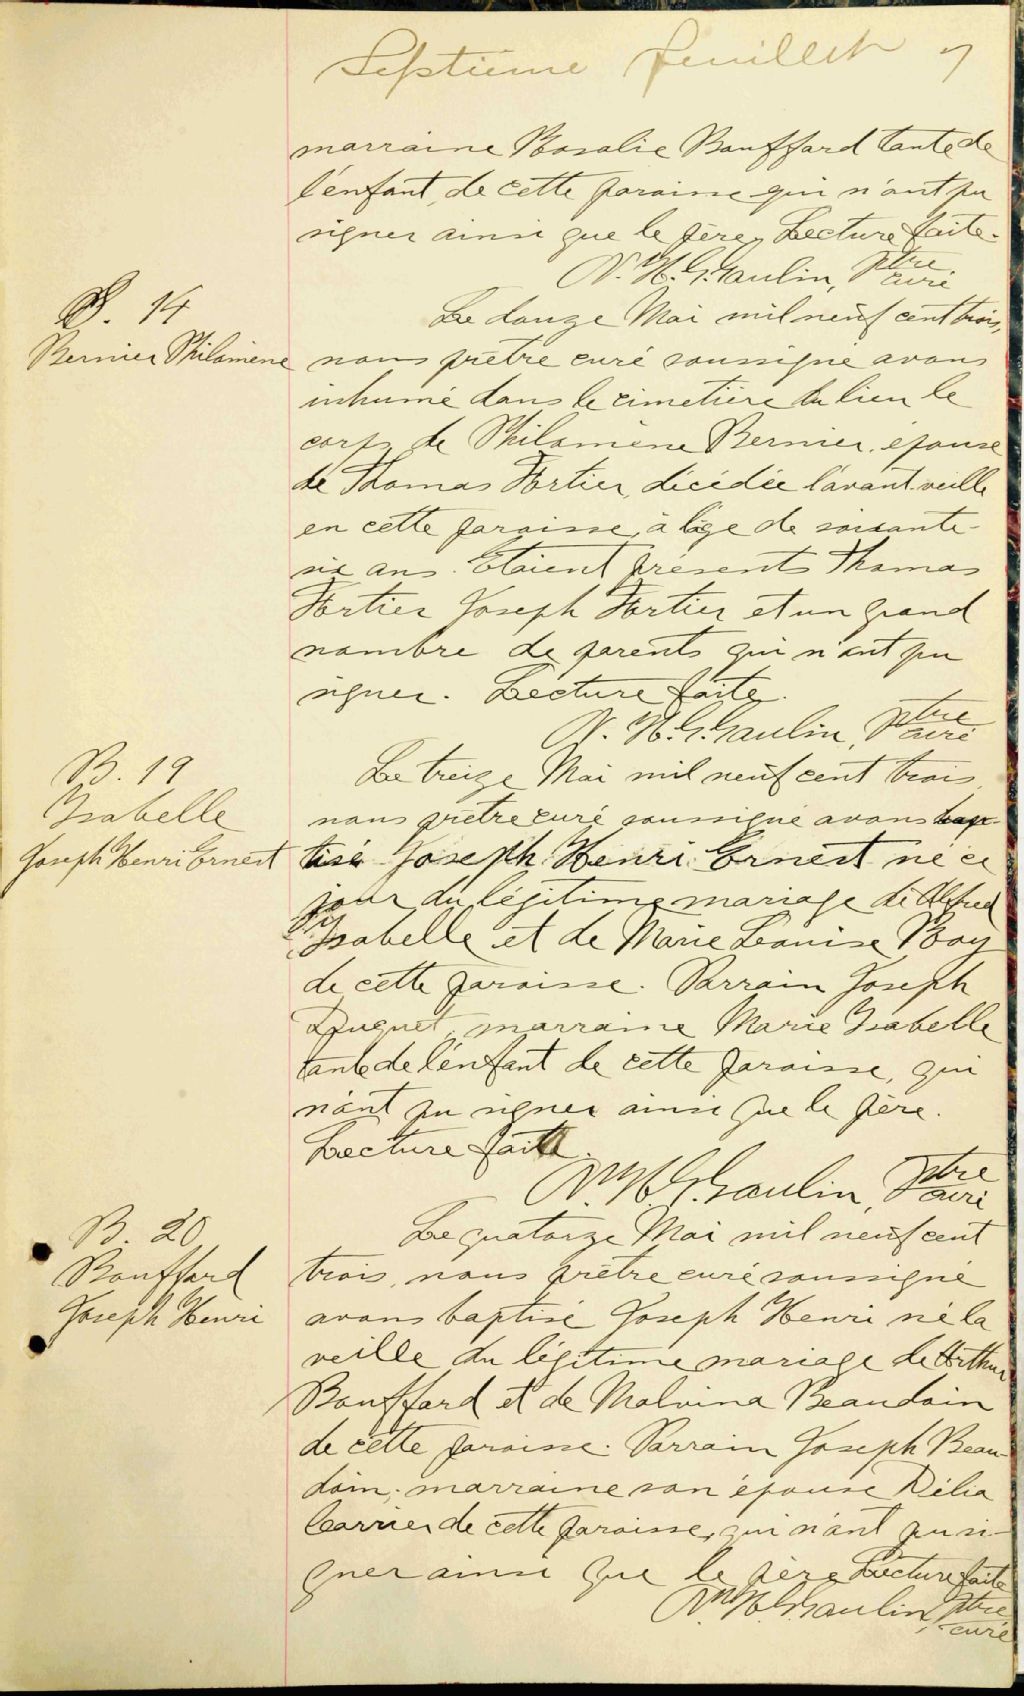 Septième feuillet 7
marraine Rosalie Bouffard tante de
l'enfant, de cette paroisse qui n'ont pu
signer ainsi que le père. Lecture faite.
N. H. G. Gaulin, Ptre curé
S. 14
Bernier Philomène
Le douze Mai mil neuf cent trois,
nous prêtre curé soussigné avons
inhumé dans le cimetière du lieu le
corps de Philomène Bernier, épouse
de Thomas Fortier, décédée l'avant-veille
en cette paroisse, à l'âge de soixante-
six ans. Etaient présents Thomas
Fortier Joseph Fortier et un grand
nombre de parents qui n'ont pu
signer. Lecture faite.
N. H. G. Gaulin, Ptre curé
B. 19
Isabelle
Joseph Henri Ernest
Le treize Mai mil neuf cent trois,
nous prêtre curé soussigné avons bap-
tisé Joseph Henri Ernest né ce
jour du légitime mariage de Alfred
Isabelle et de Marie Louise Roy
de cette paroisse. Parrain Joseph
Duguet, marraine Marie Isabelle
tante de l'enfant de cette paroisse, qui
n'ont pu signer ainsi que le père.
Lecture faite.
N. H. G. Gaulin, Ptre curé
B. 20
Bouffard
Joseph Henri
Le quatorze Mai mil neuf cent
trois, nous prêtre curé soussigné
avons baptisé Joseph Henri né la
veille du légitime mariage de Arthur
Bouffard et de Malvina Beaudoin
de cette paroisse. Parrain Joseph Beau-
doin, marraine son épouse Délia
Carrier de cette paroisse, qui n'ont pu si-
gner ainsi que le père Lecture faite
N. H. G. Gaulin, Ptre curé